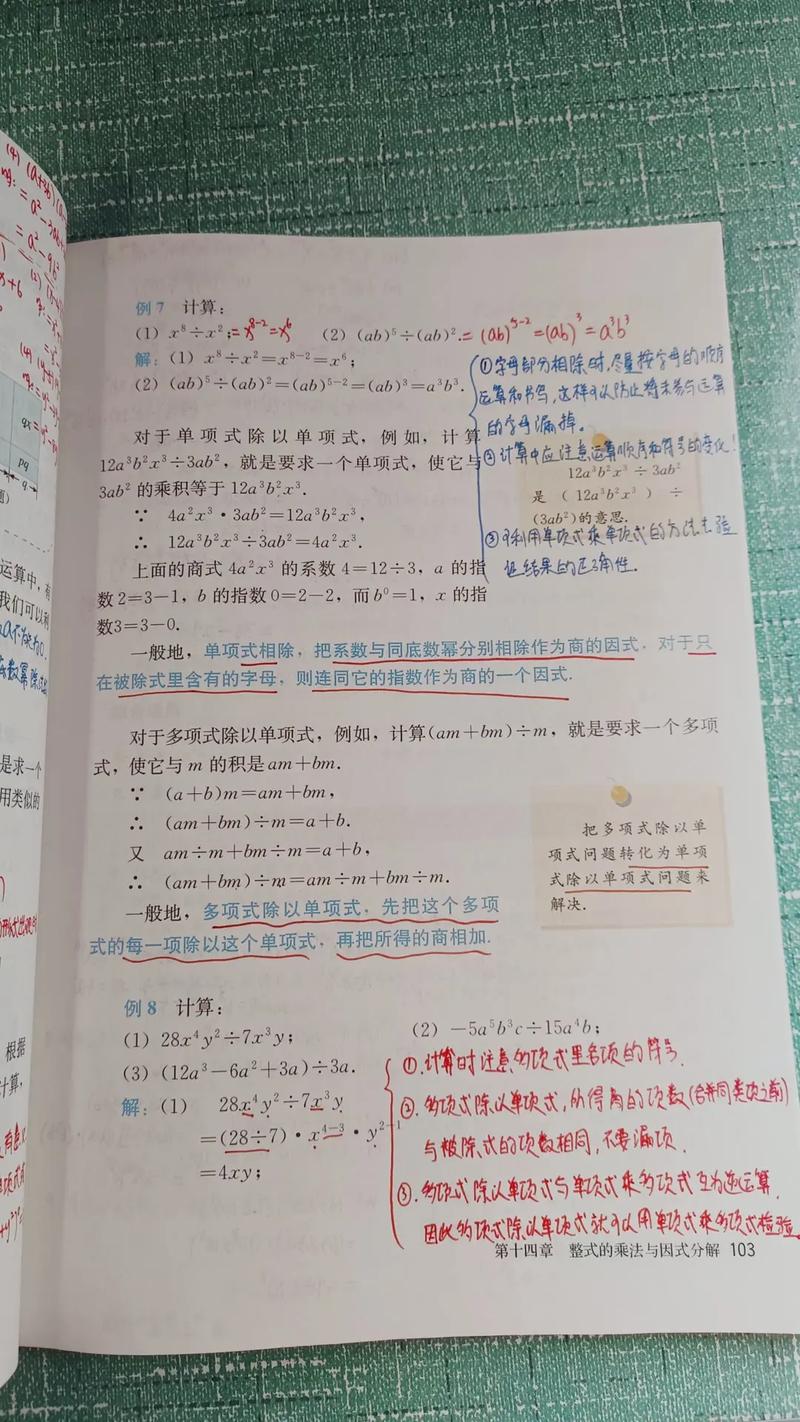 例 7 计算：
(1) x⁸÷x²; =x⁸⁻²=x⁶ (2) (ab)⁵÷(ab)². =(ab)⁵⁻²=(ab)³=a³b³
解：(1) x⁸÷x²=x⁸⁻²=x⁶;
(2) (ab)⁵÷(ab)²=(ab)⁵⁻²=(ab)³=a³b³.
①字母部分相除时，尽量按字母的顺序
运算和书写，这样可以防止将未参与运算
的字母漏掉。
②计算中应注意运算顺序和符号的变化！
对于单项式除以单项式，例如，计算
12a³b²x³÷3ab²，就是要求一个单项式，使它与
3ab² 的乘积等于 12a³b²x³.
∵ 4a²x³·3ab²=12a³b²x³,
∴ 12a³b²x³÷3ab²=4a²x³.
12a³b²x³÷3ab²
是（12a³b²x³）÷
(3ab²)的意思.
③可利用单项式乘单项式的方法去验
证结果的正确性.
上面的商式 4a²x³ 的系数 4=12÷3，a 的指
数 2=3−1，b 的指数 0=2−2，而 b⁰=1，x 的指
数3=3−0.
一般地，单项式相除，把系数与同底数幂分别相除作为商的因式，对于只
在被除式里含有的字母，则连同它的指数作为商的一个因式.
对于多项式除以单项式，例如，计算(am+bm)÷m，就是要求一个多项
式，使它与 m 的积是 am+bm.
∵ (a+b)m=am+bm,
∴ (am+bm)÷m=a+b.
又 am÷m+bm÷m=a+b,
∴ (am+bm)÷m=am÷m+bm÷m.
把多项式除以单
项式问题转化为单项
式除以单项式问题来
解决.
一般地，多项式除以单项式，先把这个多项
式的每一项除以这个单项式，再把所得的商相加.
例 8 计算：
(1) 28x⁴y²÷7x³y; (2) −5a⁵b³c÷15a⁴b;
(3) (12a³−6a²+3a)÷3a.
解：(1) 28x⁴y²÷7x³y
=(28÷7)·x⁴⁻³·y²⁻¹
=4xy;
①.计算时注意多项式里各项的符号.
②.多项式除以单项式，所得商的项数(合并同类项之前)
与被除式的项数相同，不要漏项.
③.多项式除以单项式与单项式乘多项式互为逆运算.
因此多项式除以单项式就可以用单项式乘多项式检验.
第十四章 整式的乘法与因式分解 103